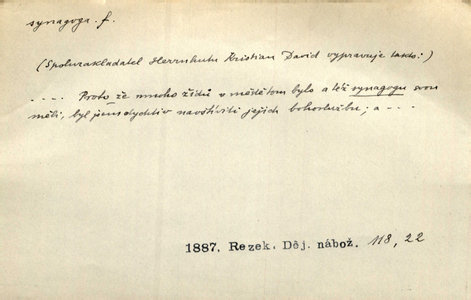 synagoga. f.
(Spoluzakladatel Herrnhutu Kristian David vypravuje takto:)
.... Proto že mnoho židů v městě tom bylo a též synagogu svou
měli, byl jsem dychtiv navštíviti jejich bohoslužbu; a ...
1887. Rezek. Děj. nábož. 118, 22